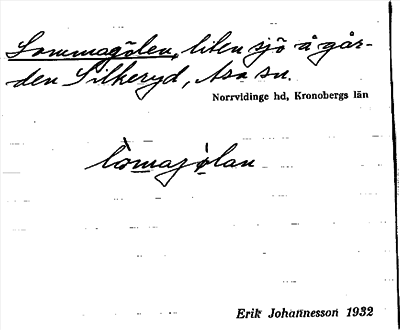 Lommagölen, liten sjö å går-
den Silkeryd, Asa sn.
Norrvidinge hd, Kronobergs län
lòmajö̀lan
Erik Johannesson 1932